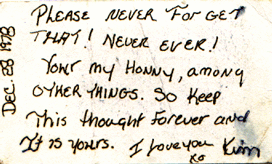 PLEASE NEVER FORGET
THAT! NEVER EVER!
Your my HONNY, among
OTHER THINGS. So Keep
This thought forever and
It is yours. I love you Kim
xo
DEC 28 1978